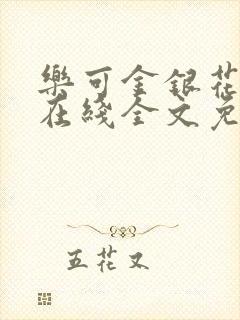 樂可金銀花
在綫全文免
五花又